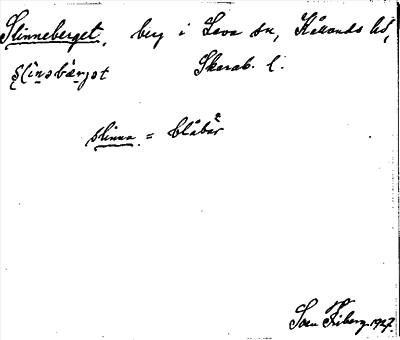 Slinneberget, berg i Leva sn, Kållands hd,
Skarab. l.
slinna = blåbär
Sven Friberg 1927.